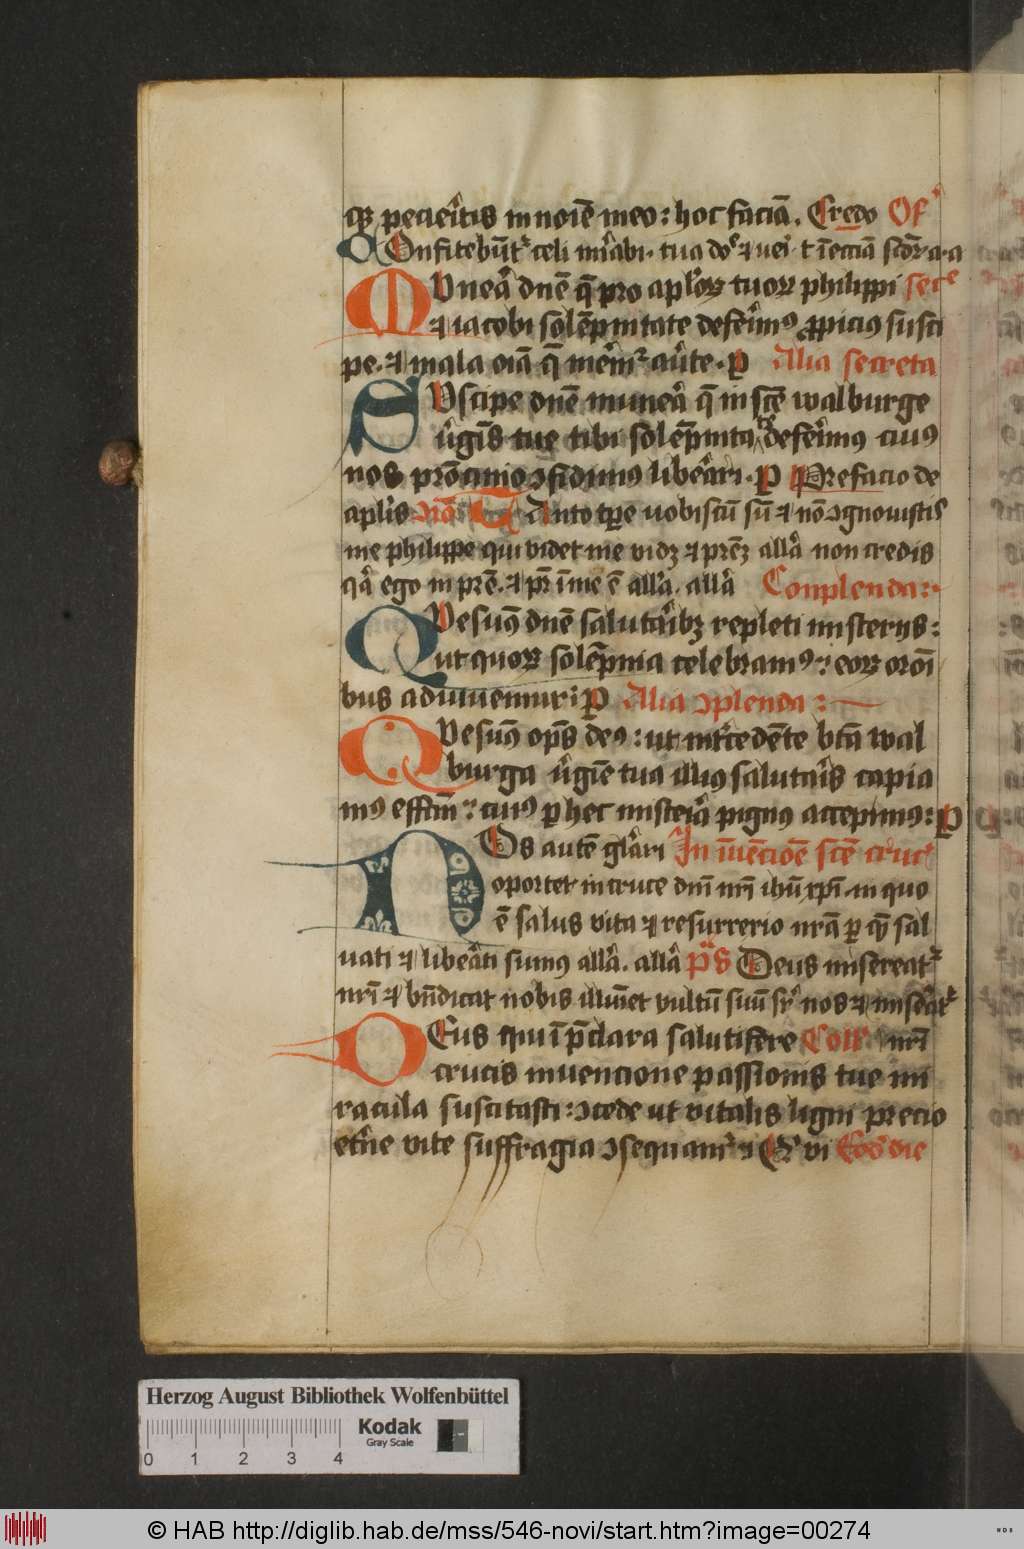 cq petieritis in noīe meo: hoc faciā. Credo Of
COnfitebūt celi mirabi. tua do et ueri t ī eccīa scōr a. a
MUnea dnē q̄ pro aplor tuor philippi secre
et iacobi solēpnitate deferimus ppicius susci
pe. et mala oīa q̄ merem auerte. p Alia secreta
SUscipe dnē munea q̄ in scē walburge
uirgīs tue tibi solēpnita deferimus cuius
nos prōcinio ɔfidimus liberari. p Prefacio de
aplis Cō Tanto tpre uobiscū sū et nō ɔgnouistis
me philippe qui videt me vidz et prēz allā non credis
qa ego in prē. et pr ī me ē allā. allā Conplenda:
QUesum dnē salutaribz repleti misterijs:
ut quor solēpnia celebramus: eor oroni
bus adiuuemur: p Alia ɔplenda:
QUesum ops deus: ut intercedēte btā wal
burga uirgīe tua illius salutaris capia
mus effctm: cuius p hec misteria pignus accepimus: p
NOs autē gloari In īuēcioē scē cruc
oportet in cruce dnī nrī ihū xpī. in quo
ē salus vita et resurrexio nrā p quē sal
uati et liberati sumus allā. allā ps Deus misereat
nrī et bndicat nobis illumet vultū suū sr nos et misereat
DEus qui ī pclara salutifere Coll nrī
crucis inuencione passionis tue mi
racula suscitasti: ɔcede ut vitalis ligni precio
etne vite suffragia ɔsequamr: Qr vi Eod die
Herzog August Bibliothek Wolfenbüttel
Kodak
Gray Scale
0 1 2 3 4
© HAB http://diglib.hab.de/mss/546-novi/start.htm?image=00274